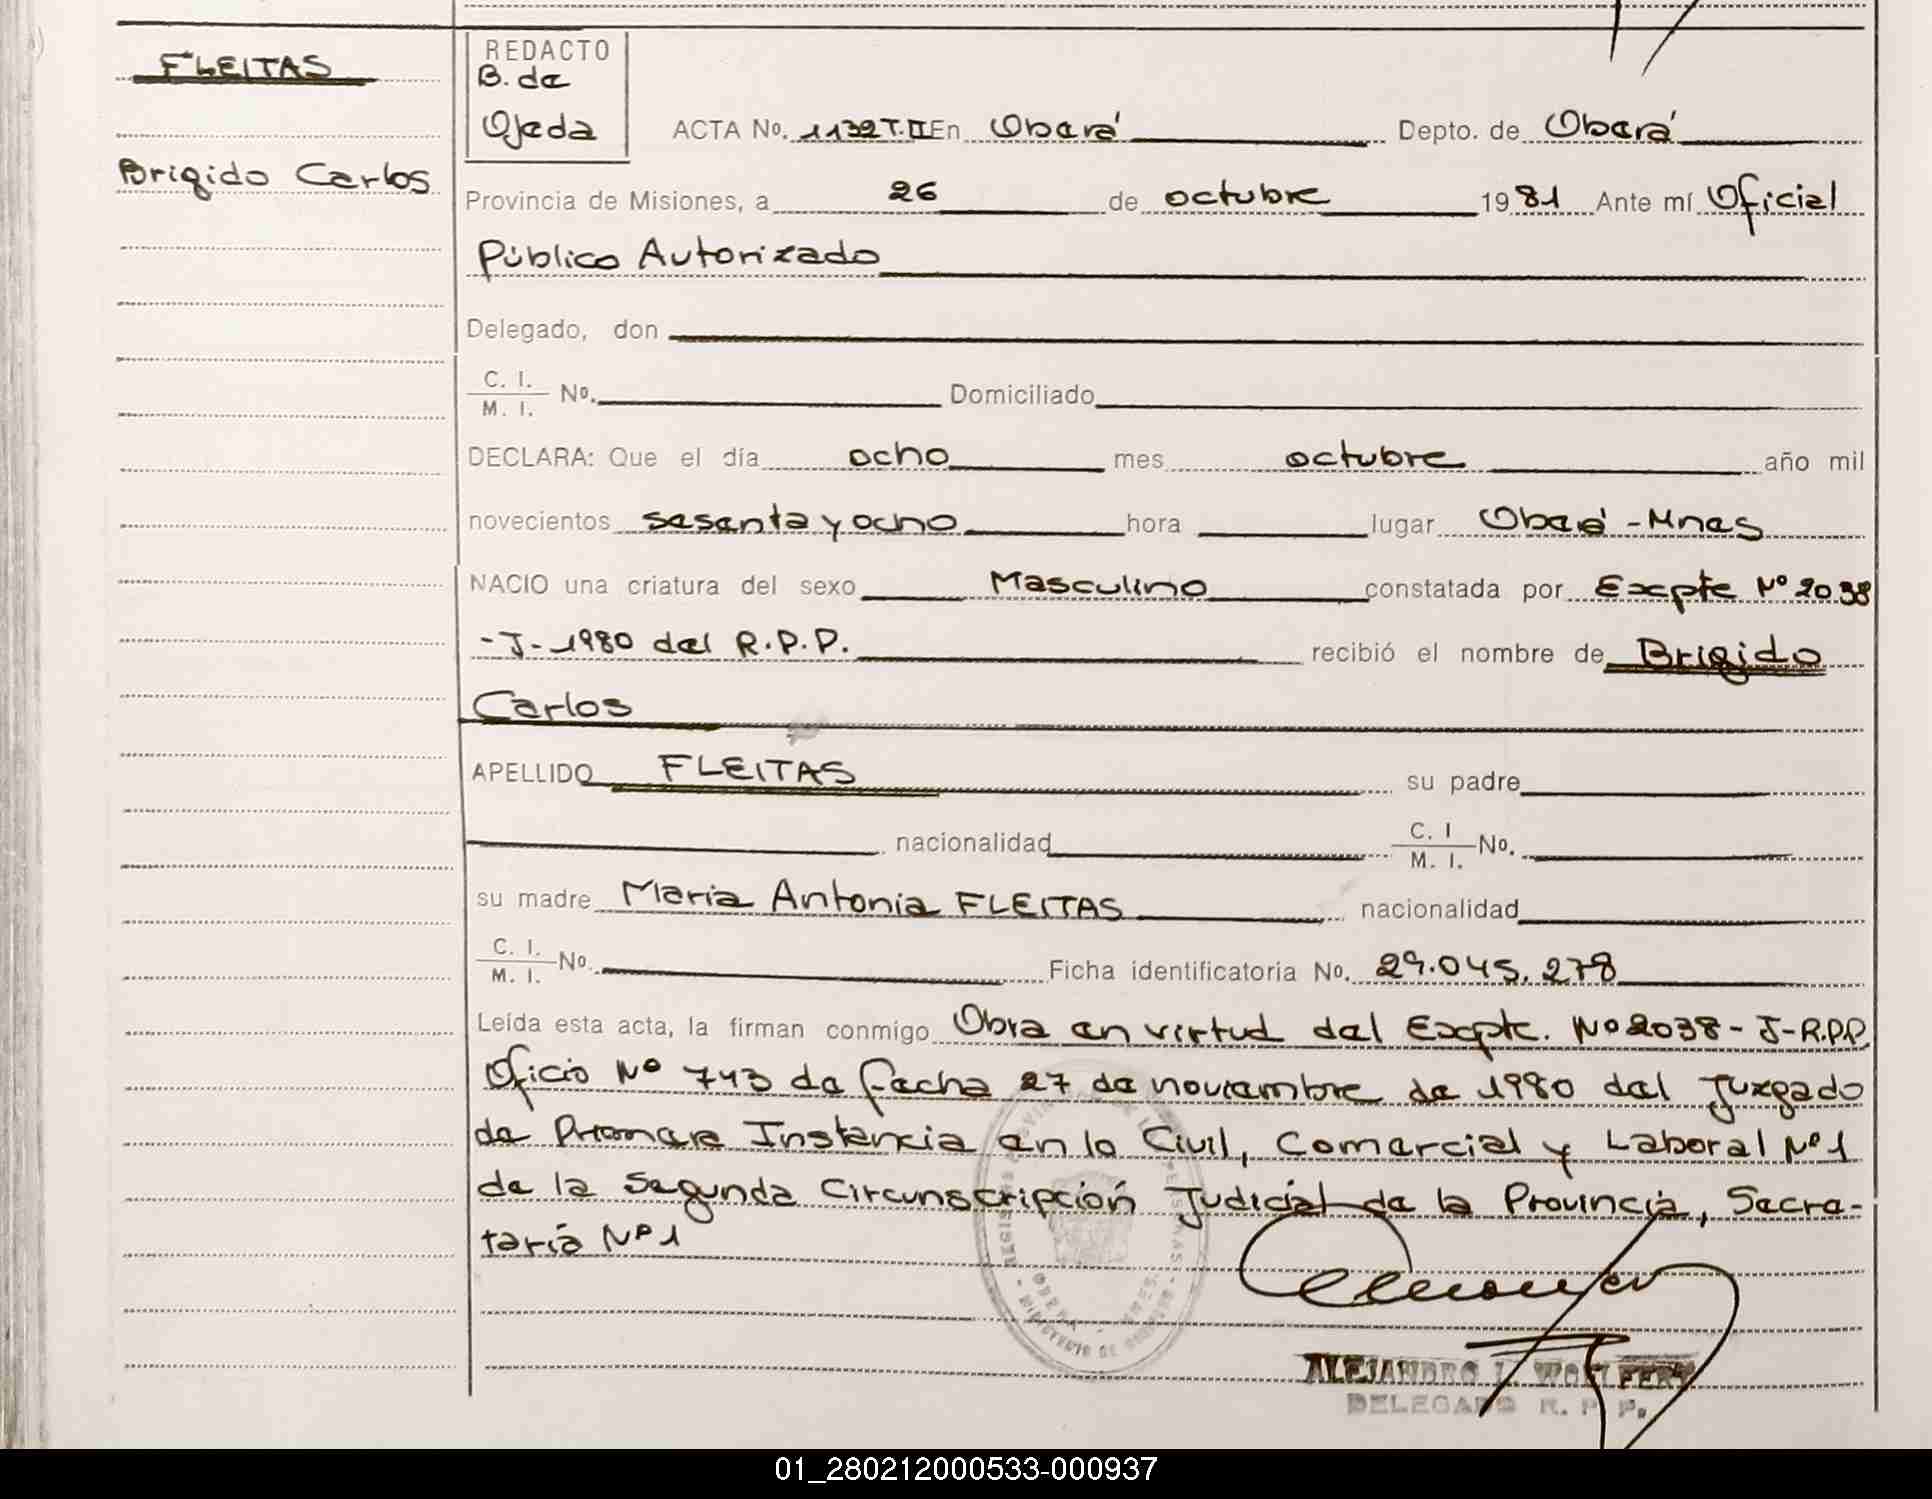 FLEITAS
Brigido Carlos
REDACTO
B. de
Ojeda
ACTA No. 1132 T.II En Oberá Depto. de Oberá
Provincia de Misiones, a 26 de octubre 1981 Ante mí Oficial
Público Autorizado
Delegado, don
C. I. / M. I. No. Domiciliado
DECLARA: Que el día ocho mes octubre año mil
novecientos sesenta y ocho hora lugar Oberá - Mnes
NACIO una criatura del sexo Masculino constatada por Expte Nº 2038
- J - 1980 del R.P.P. recibió el nombre de Brigido
Carlos
APELLIDO FLEITAS su padre
nacionalidad C. I / M. I. No.
su madre Maria Antonia FLEITAS nacionalidad
C. I. / M. I. No. Ficha identificatoria No. 29.045.278
Leída esta acta, la firman conmigo Obra en virtud del Expte. Nº 2038 - J - R.P.P.
Oficio Nº 743 de fecha 27 de noviembre de 1980 del Juzgado
de Primera Instancia en lo Civil, Comercial y Laboral Nº 1
de la Segunda Circunscripción Judicial de la Provincia, Secre-
taría Nº 1
ALEJANDRO L. WOLFERT
DELEGADO R. P. P.
01_280212000533-000937